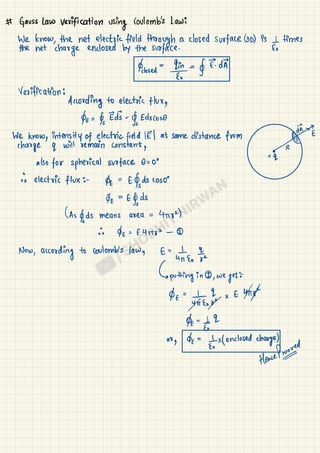 # Gauss Law verification using Coulomb's Law:
We know, the net electric field through a closed surface (3D) is 1/ε₀ times
the net charge enclosed by the surface.
ϕclosed = qin/ε₀ = ∮ E⃗·dA⃗
Verification:
According to electric flux,
ϕE = ∮s E⃗ds⃗ = ∮s Eds cosθ
We know, intensity of electric field |E| at same distance from
charge q will remain constant,
also for spherical surface θ=0°
∴ electric flux:- ϕE = E∮s ds cos0°
ϕE = E∮s ds
(As ∮ds means area = 4πr²)
∴ ϕE = E4πr² — ①
Now, according to coulomb's law, E = 1/4πε₀ q/r²
putting in ①, we get:
ϕE = 1/4πε₀ q/r² × E 4πr²
ϕE = 1/ε₀ q
or, ϕE = 1/ε₀ ×(enclosed charge)
Hence proved
dA
E
R
+q
NIRWAN